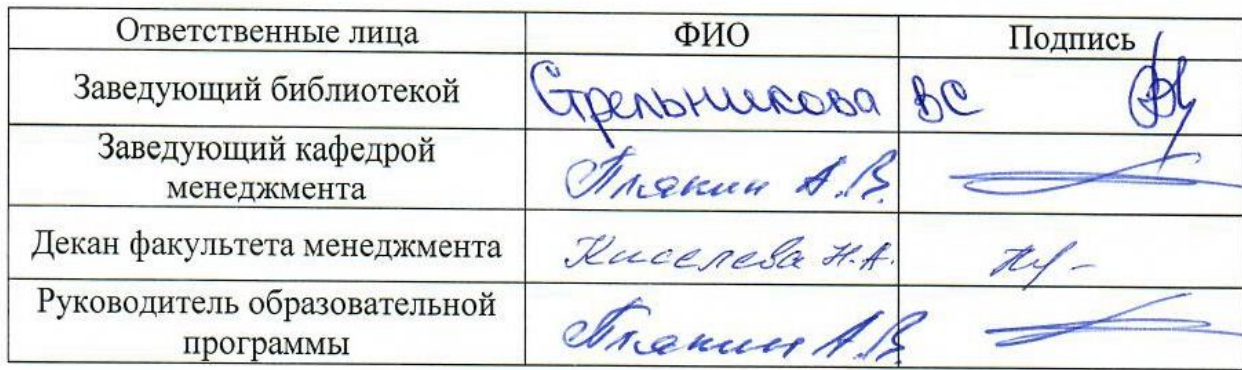 Ответственные лица ФИО Подпись
Заведующий библиотекой Стрельникова ВС
Заведующий кафедрой
менеджмента Плякин А.В.
Декан факультета менеджмента Киселева Н.А.
Руководитель образовательной
программы Плякин А.В.